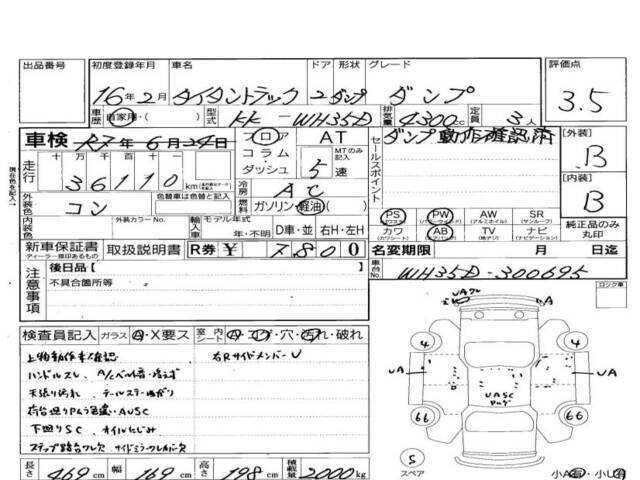 出品番号 初度登録年月 車名 ドア 形状 グレード 評価点
16年2月 タイタントラック 2 ダンプ ダンプ 3.5
車歴 自家用・( ) 型式 KK-WH35D 排気量 4300cc 定員 3人
車検 R7年6月24日 フロア AT セールスポイント ダンプ動作確認済 【外装】
走行 十 万 千 百 十 一 コラム MTのみ記入 B
36110 km ダッシュ 5速 【内装】
外装色 コン 色替車は色替と記入 冷房 AC B
燃料 ガソリン・軽油( ) PS PW AW SR
(パワステ) (パワーウィンド) (アルミホイル) (サンルーフ)
内装色 外装カラーNo. 輸入車 モデル年式 カワ AB TV ナビ 純正品のみ丸印
年・不明 D車・並 右H・左H (カワシート) (エアバック) (地デジ) (ナビゲーション)
新車保証書 取扱説明書 R券 ¥ 7800 名変期限 月 日迄
ディーラー捺印あるもの
注意事項 後日品【 】 車台No. WH35D-300695
不具合箇所等 ロック車
検査員記入 ガラス A・X要ス 室内シート コゲ・穴・汚れ・破れ
上物動作未確認 右RサイドメンバーU
ハンドルスレ、A/Cベルト音・冷えず
天張り汚れ、
荷台廻りPムラ色違・AUSC
下廻りSC オイルにじみ
ステップ踏台ワレ欠 サイドミラーカバー欠
長さ 469cm 幅 169cm 高さ 198cm 積載量 2000kg
UA A
4 4
UA UA
UASC
66 66
5
スペア
小A有・小U有